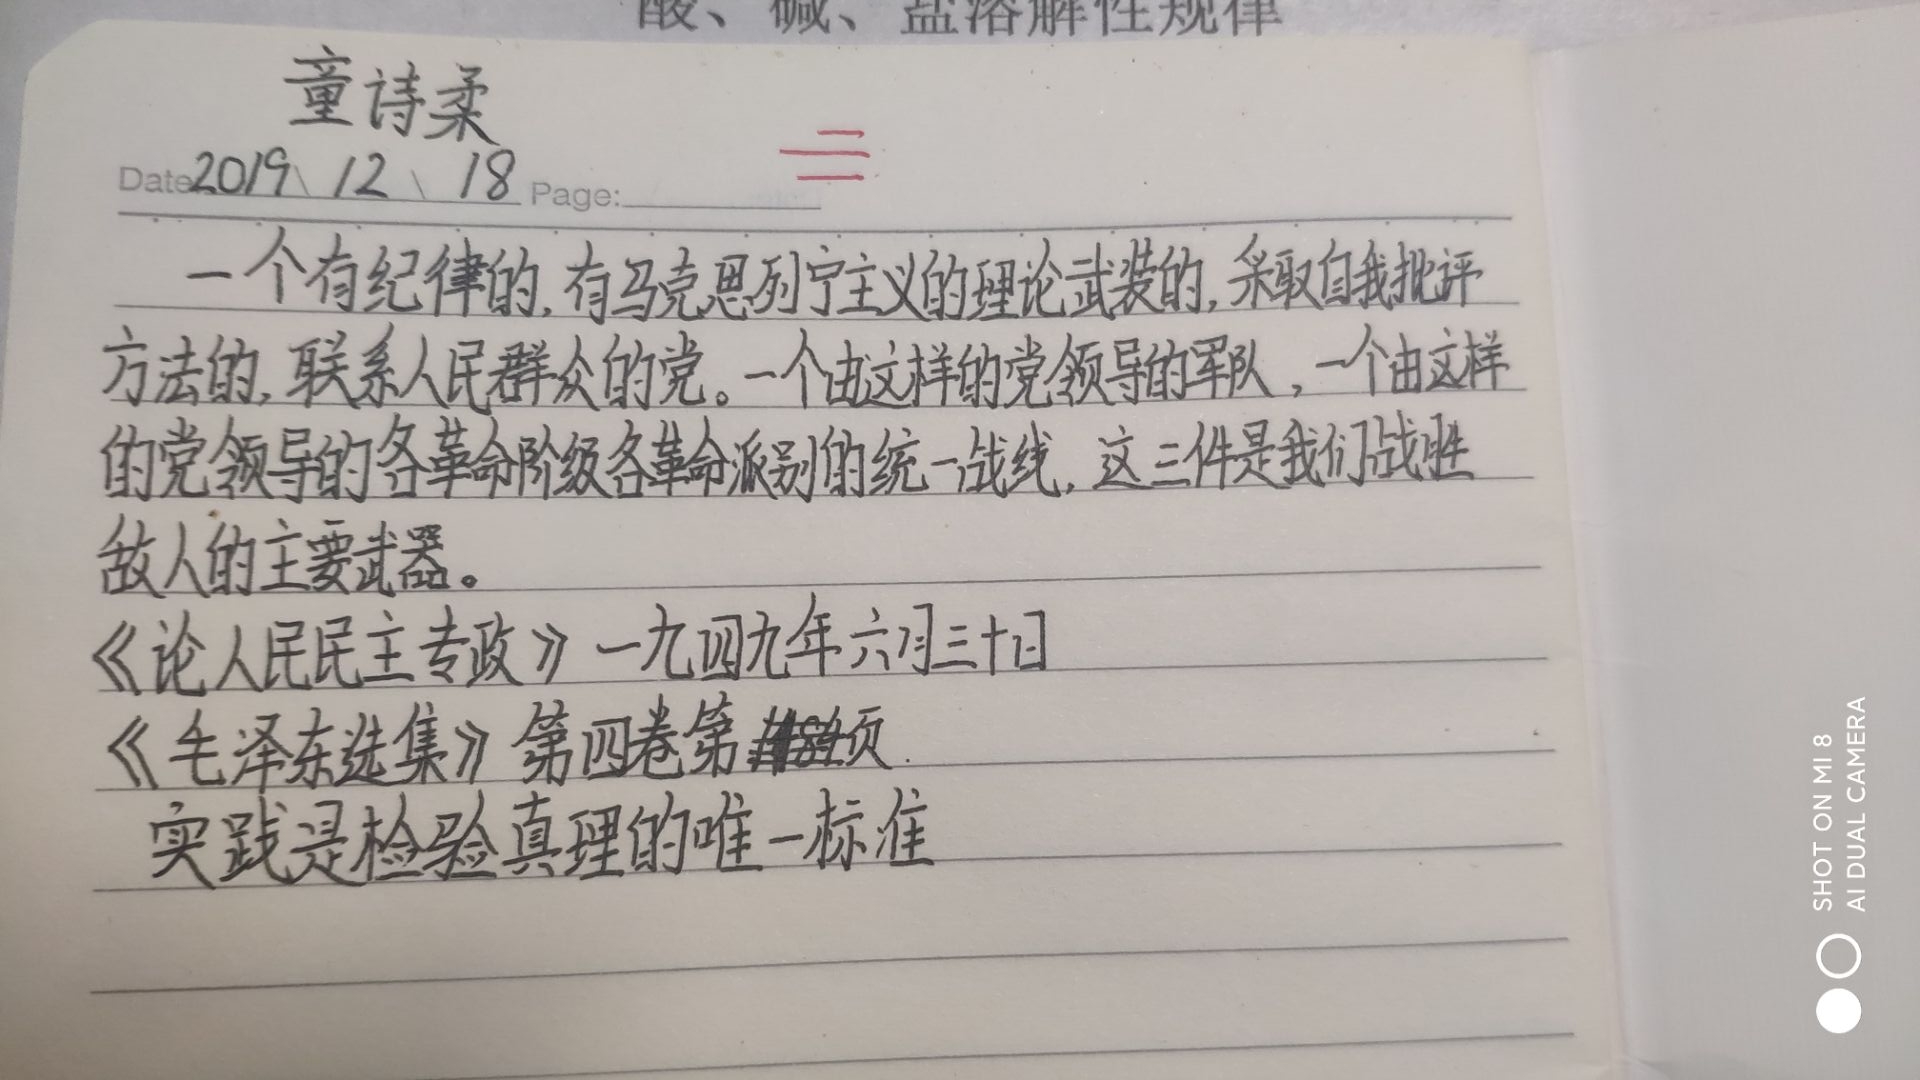 酸、碱、盐溶解性规律
童诗柔
Date 2019 \ 12 \ 18 Page:
一个有纪律的,有马克思列宁主义的理论武装的,采取自我批评
方法的,联系人民群众的党。一个由这样的党领导的军队,一个由这样
的党领导的各革命阶级各革命派别的统一战线,这三件是我们战胜
敌人的主要武器。
《论人民民主专政》一九四九年六月三十日
《毛泽东选集》第四卷第 页.
实践是检验真理的唯一标准
SHOT ON MI 8
AI DUAL CAMERA